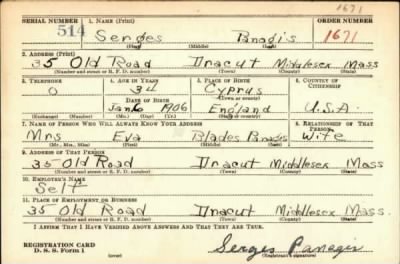 1671
SERIAL NUMBER 1. NAME (Print) ORDER NUMBER
514 Serges Panagis 1671
(First) (Middle) (Last)
2. ADDRESS (Print)
35 Old Road Dracut Middlesex Mass
(Number and street or R. F. D. number) (Town) (County) (State)
3. TELEPHONE 4. AGE IN YEARS 5. PLACE OF BIRTH 6. COUNTRY OF CITIZENSHIP
O 34 Cyprus
DATE OF BIRTH (Town or county)
Jan 6 1906 England U.S.A.
(Exchange) (Number) (Mo.) (Day) (Yr.) (State or country)
7. NAME OF PERSON WHO WILL ALWAYS KNOW YOUR ADDRESS 8. RELATIONSHIP OF THAT PERSON
Mrs Eva Blades Panagis Wife
(Mr., Mrs., Miss) (First) (Middle) (Last)
9. ADDRESS OF THAT PERSON
35 Old Road Dracut Middlesex Mass
(Number and street or R. F. D. number) (Town) (County) (State)
10. EMPLOYER'S NAME
Self
11. PLACE OF EMPLOYMENT OR BUSINESS
35 Old Road Dracut Middlesex Mass.
(Number and street or R. F. D. number) (Town) (County) (State)
I AFFIRM THAT I HAVE VERIFIED ABOVE ANSWERS AND THAT THEY ARE TRUE.
REGISTRATION CARD
D. S. S. Form 1 (over) Serges Panagis
(Registrant's signature)